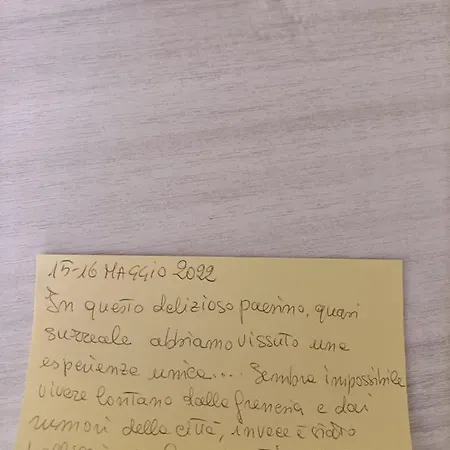 15-16 MAGGIO 2022
In questo delizioso paesino, quasi
surreale abbiamo vissuto una
esperienza unica.... Sembra impossibile
vivere lontano dalla frenesia e dai
rumori della città, invece è stato